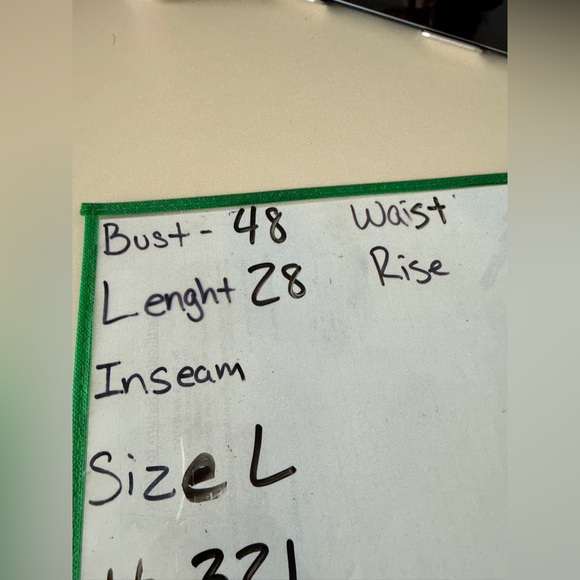 Bust - 48 Waist
Lenght 28 Rise
Inseam
Size L
321